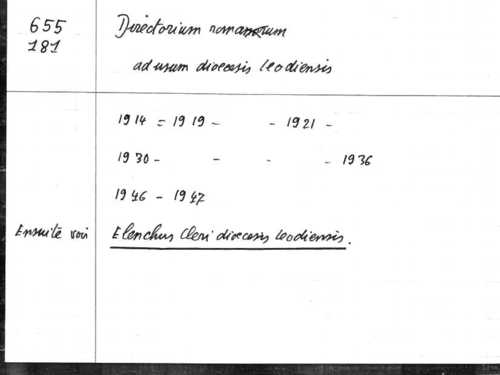 655
181
Directorium romanorum
ad usum diocesis leodiensis
1914 = 1919 - - 1921 -
1930 - - - - 1936
1946 - 1947
Ensuite voir Elenchus Cleri diocesis leodiensis.